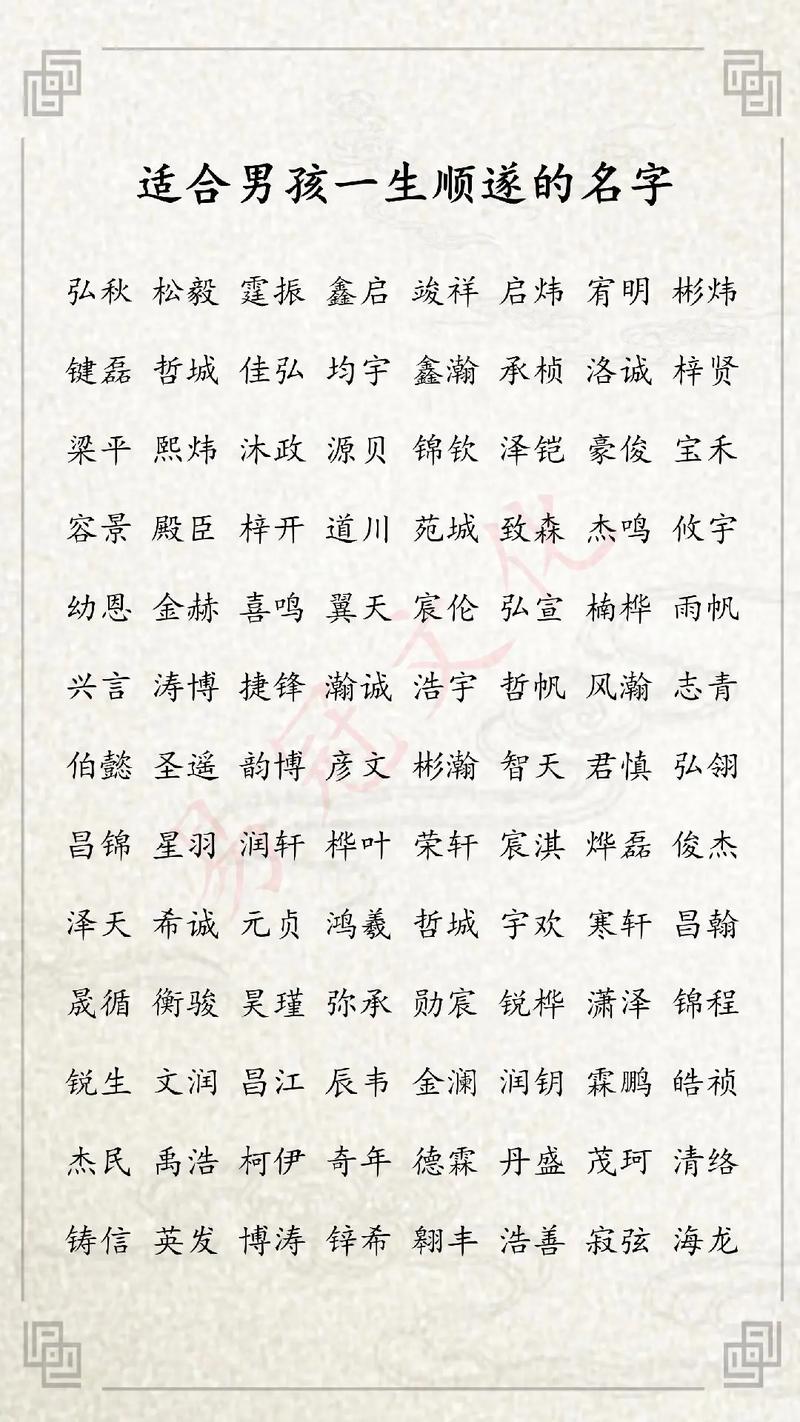 适合男孩一生顺遂的名字
弘秋 松毅 霆振 鑫启 竣祥 启炜 宥明 彬炜
键磊 哲城 佳弘 均宇 鑫瀚 承桢 洛诚 梓贤
梁平 熙炜 沐政 源贝 锦钦 泽铠 豪俊 宝禾
容景 殿臣 梓开 道川 苑城 致森 杰鸣 攸宇
幼恩 金赫 喜鸣 翼天 宸伦 弘宣 楠桦 雨帆
兴言 涛博 捷锋 瀚诚 浩宇 哲帆 风瀚 志青
伯懿 圣遥 韵博 彦文 彬瀚 智天 君慎 弘翎
昌锦 星羽 润轩 桦叶 荣轩 宸淇 烨磊 俊杰
泽天 希诚 元贞 鸿羲 哲城 宇欢 寒轩 昌翰
晟循 衡骏 昊瑾 弥承 勋宸 锐桦 潇泽 锦程
锐生 文润 昌江 辰韦 金澜 润钥 霖鹏 皓祯
杰民 禹浩 柯伊 奇年 德霖 丹盛 茂珂 清络
铸信 英发 博涛 锌希 翱丰 浩善 寂弦 海龙
易冠文化